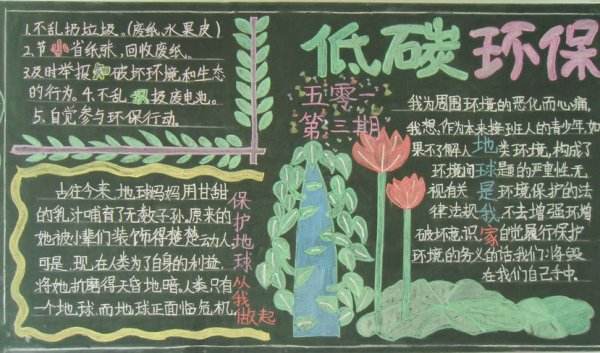 1.不乱扔垃圾。(废纸,水果皮)
2.节省纸张,回收废纸。
3.及时举报破坏环境和生态
的行为。4.不乱扔废电池。
5.自觉参与环保行动。
低碳环保
五零一
第三期
我为周围环境的恶化而心痛,
我想,作为本来接班人的青少年,如
果不了解人类环境,构成了
环境间题的严重性,无
视有关环境保护的法
律法规,不去增强环增
破坏意识,自觉履行保护
环境的务义的话,我们将毁
在我们自己手中.
地球是我家
古往今来,地球妈妈用甘甜
的乳汁哺育了无数子孙.原来的
她被小辈们装饰得楚楚动人
可是,现,在人类为了自身的利益,
将她折磨得天昏地暗,人类只有
一个地球,而地球正面临危机,
保护地球从我做起